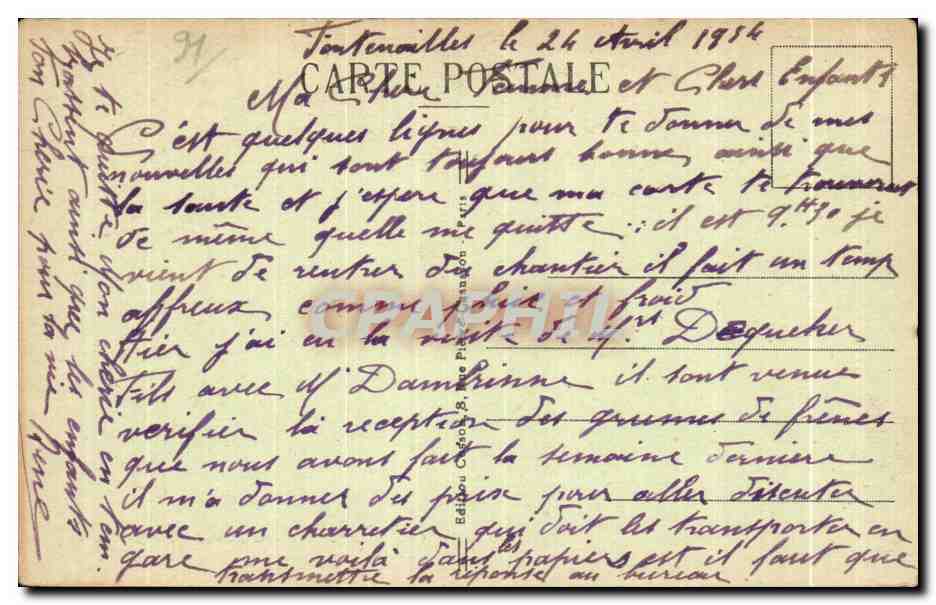 91/
Fontenailles le 24 Avril 1934
CARTE POSTALE
Ma Chere Femme et Chers Enfants
C'est quelques lignes pour te donner de mes
nouvelles qui sont toujours bonnes ainsi que
la sante et j'espere que ma carte te trouveras
de même quelle me quitte : il est 9H30 je
vient de rentrer du chantier il fait un temp
affreux comme pluie et froid
Hier j'ai eu la visite de Mrs Dequeker
Fils avec M Dambrinne il sont venue
verifier la reception des grumes de frênes
que nous avons fait la semaine derniere
il m'a donner des prix pour aller discuter
avec un charretier qui doit les transporter en
gare me voilà dans les papiers est il faut que
transmettre la réponse au bureau
Je te quitte Mon cherie en t'em
brassent ainsi que les enfants
Ton Cherie pour la vie Rene
CRAPHIL